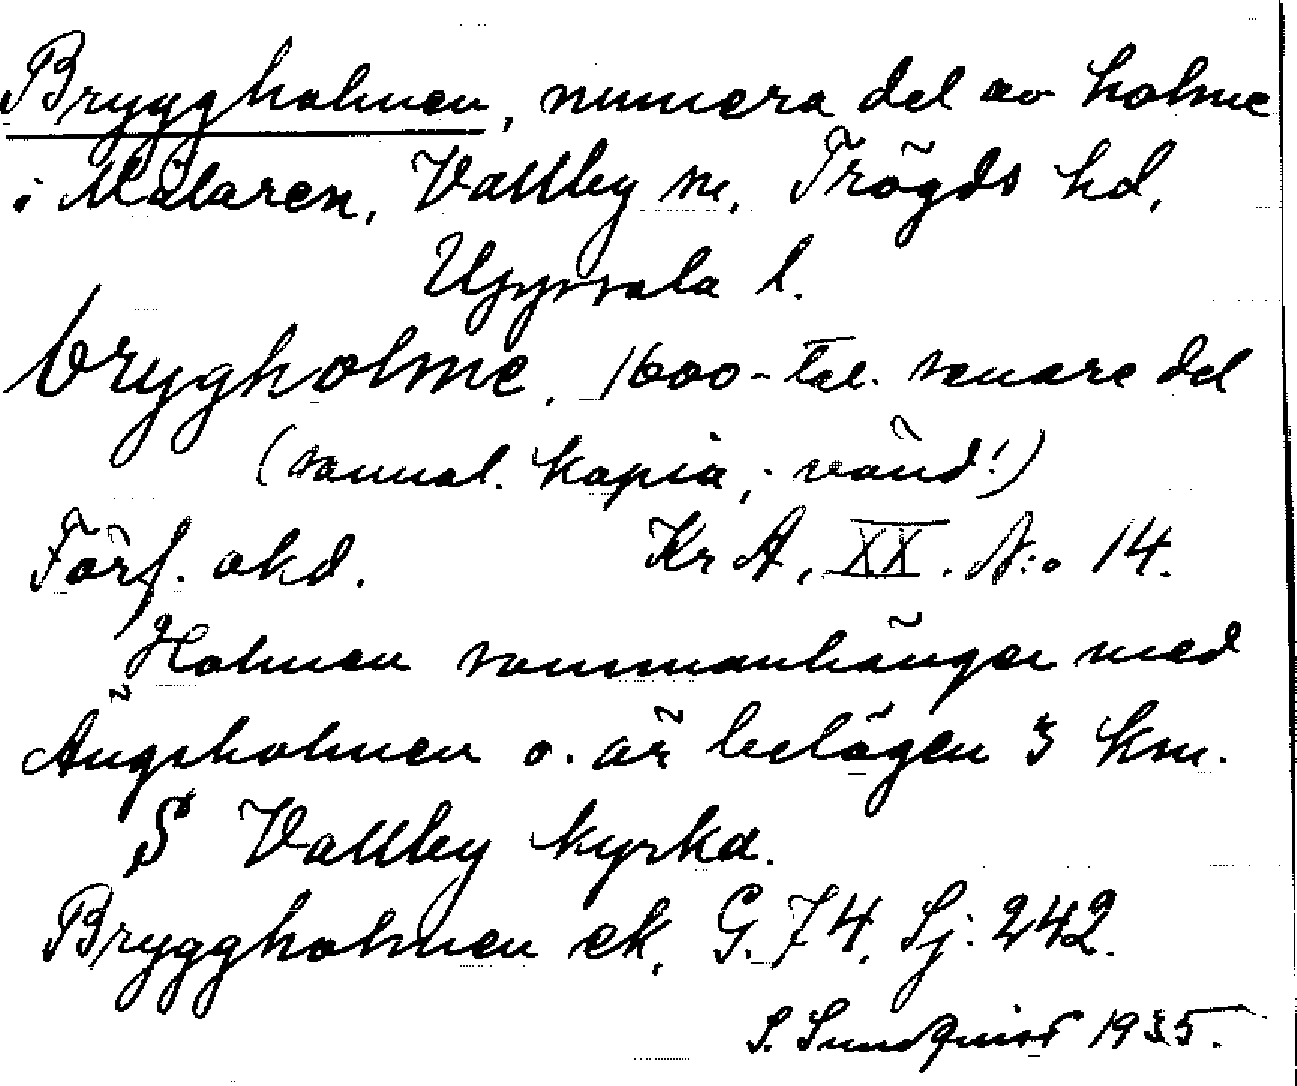 Bryggholmen, numera del av holme
i Mälaren, Vallby sn, Trögds hd,
Uppsala l.
brygholme, 1600-tal. senare del
(samal. kopia, - vänd!)
Förf. okd. Kr A, XX. N:o 14.
Holmen sammanhänger med
Ängsholmen o. är belägen 3 km.
S Vallby kyrka.
Bryggholmen ek. G. 74. Sj: 242.
S. Sundquist 1935.